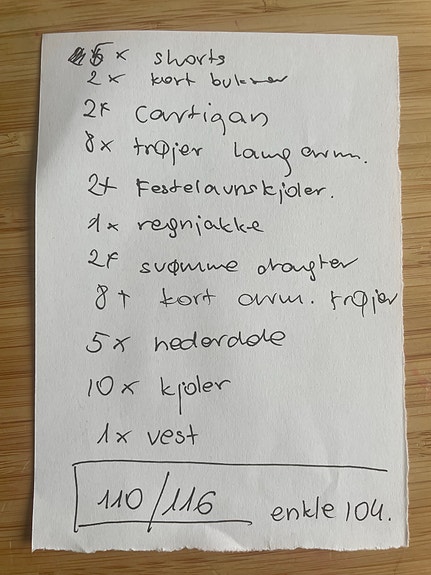 5 x shorts
2x kort bukser
2x Cartigan
8x trøjer lang arm.
2x Festelavnskjoler.
1x regnjakke
2x svømme dragter
8x kort arm. trøjer
5x nederdele
10x kjoler
1x vest
110/116 enkle 104.